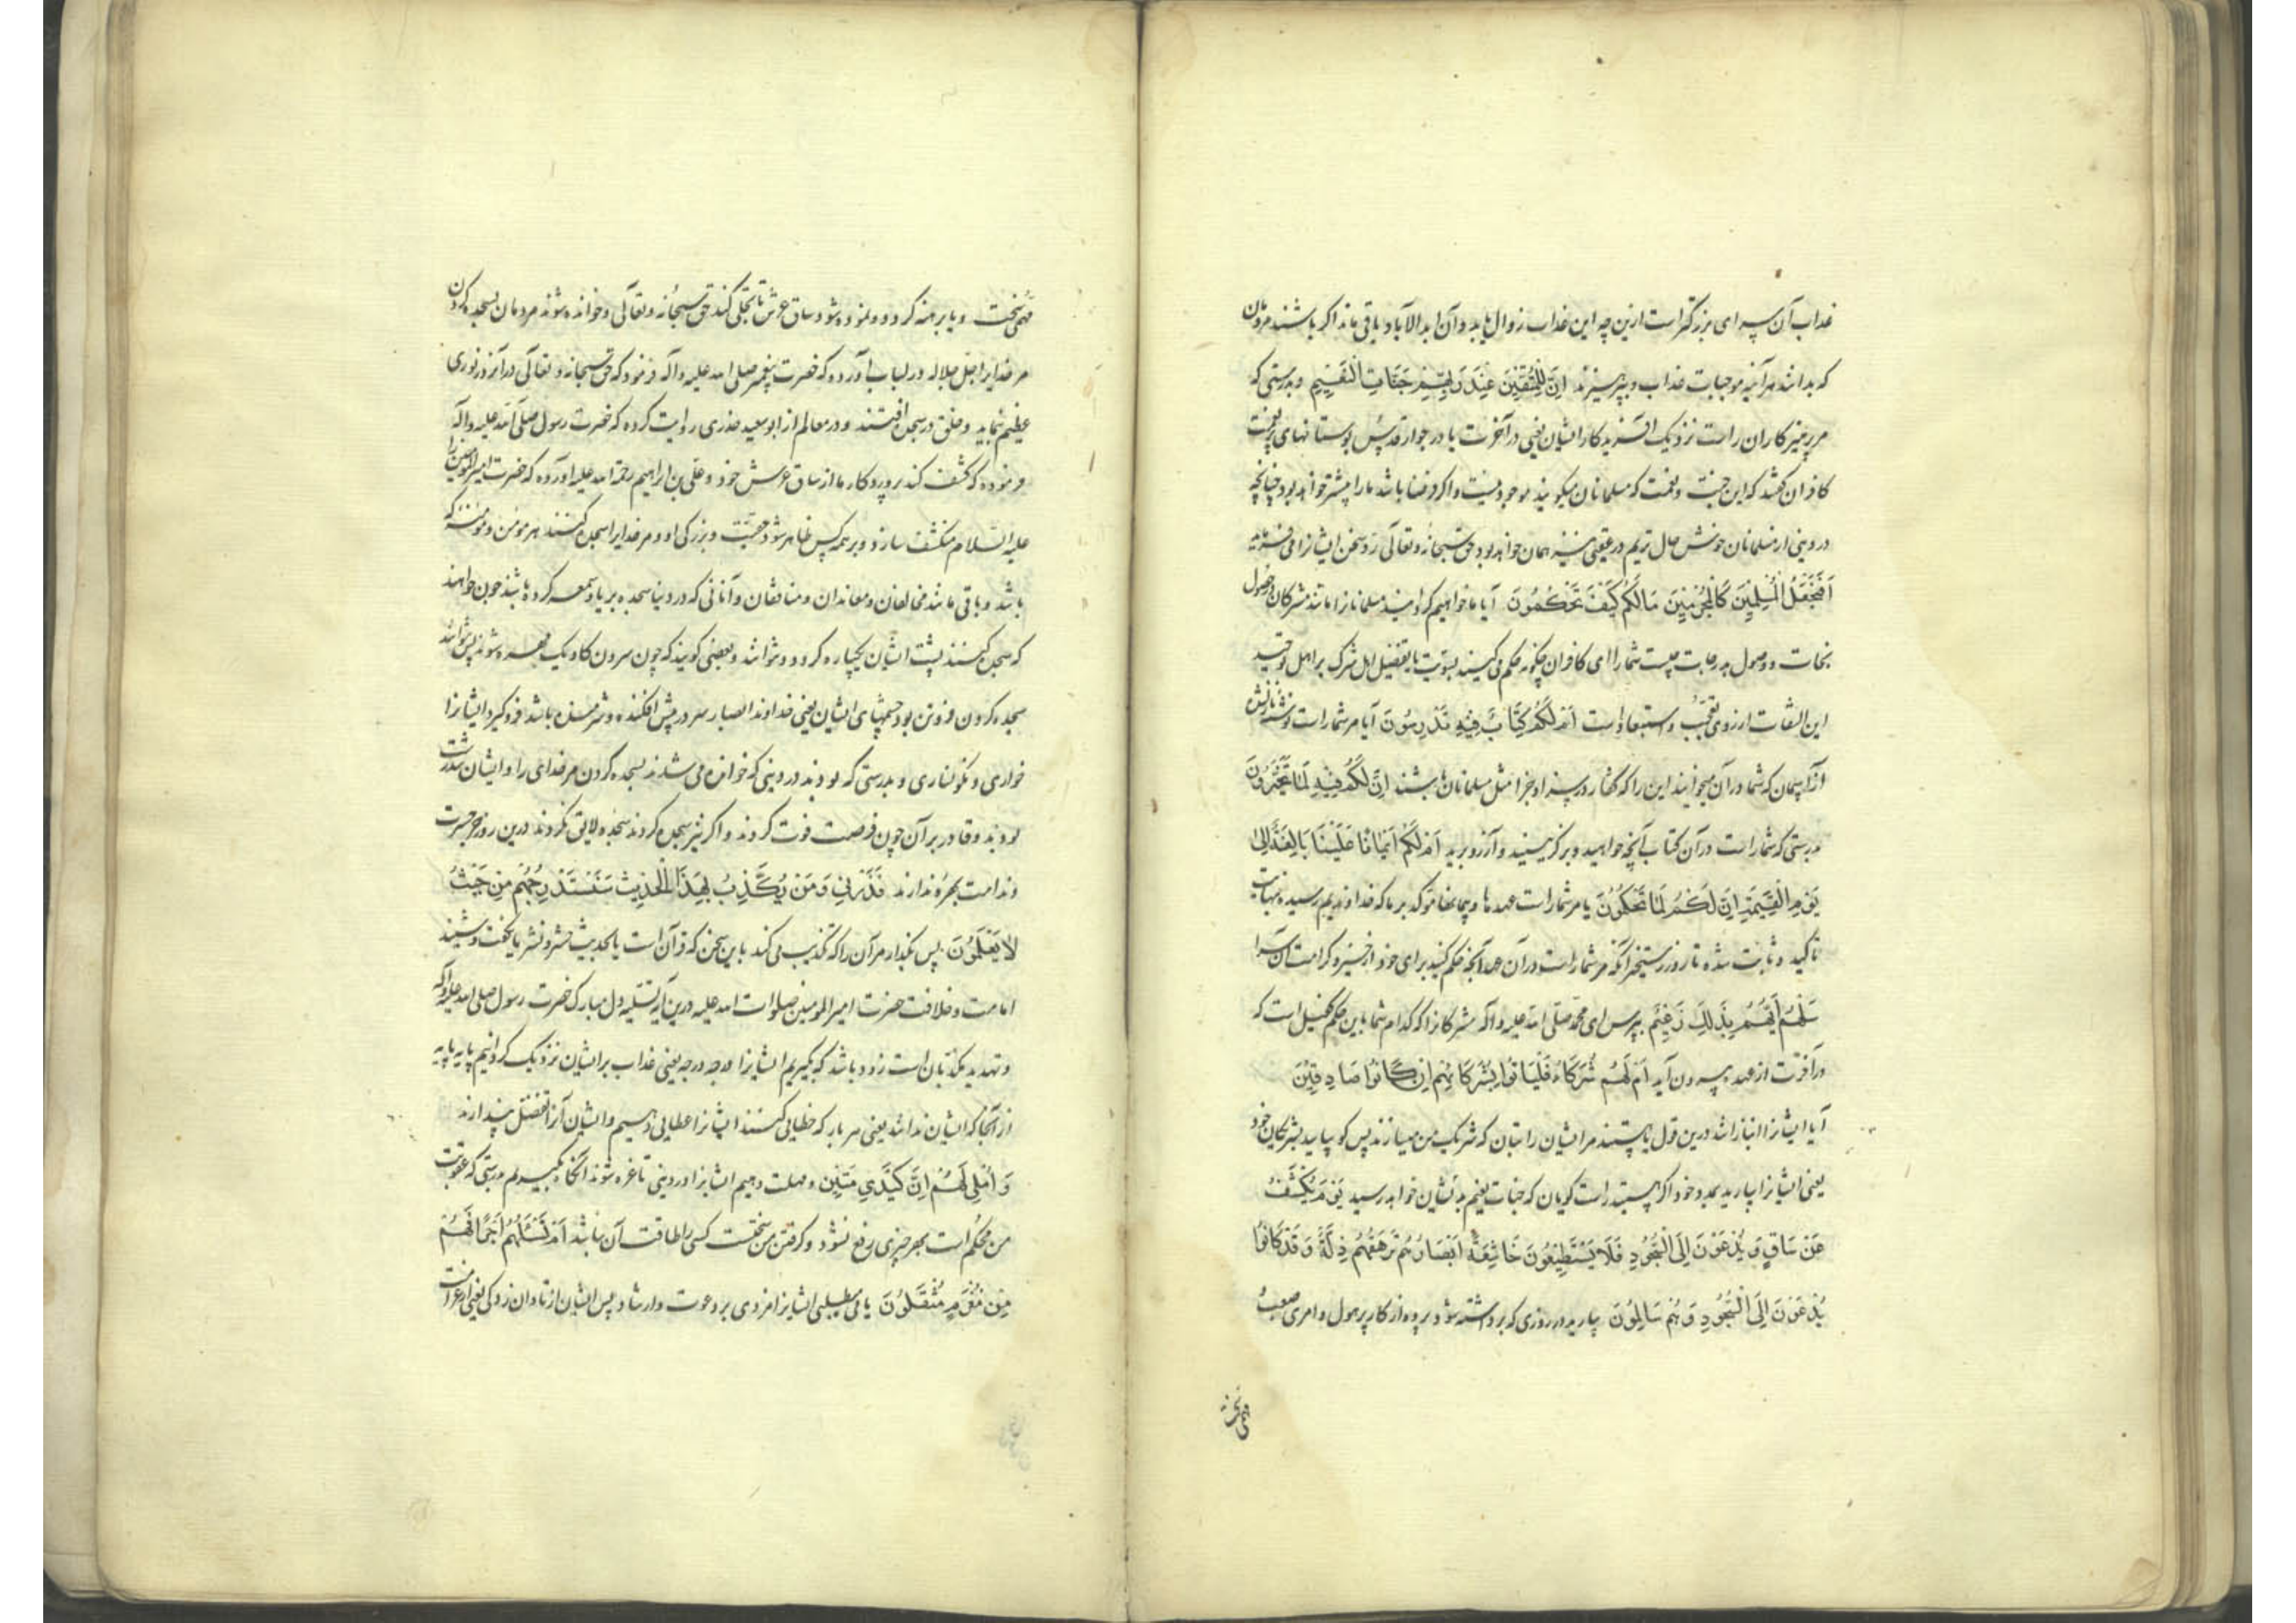 عذاب آن سرای بزرگتر است ازین چه این عذاب زوال یابد و آن ابد الآباد باقی ماند اگر باشند مردمان
که بدانند هر آینه موجبات عذاب و بپرهیزند اِنَّ لِلْمُتَّقِینَ عِنْدَ رَبِّهِمْ جَنَّاتِ النَّعِیمِ و بدرستی که
مر پرهیزکاران راست نزدیک آفریدگار ایشان یعنی در آخرت یا در جوار قدس بوستانهای پر نعمت
کافران گفتند که این جنت و نعمت که مسلمانان میگویند موجود نیست و اگر فرضا باشد ما را بیشتر خواهد بود چنانچه
در دنیی از مسلمانان خوش حال تریم در عقبی نیز همان خواهد بود حق سبحانه و تعالی رد سخن ایشانرا می فرماید
اَفَنَجْعَلُ الْمُسْلِمِینَ کَالْمُجْرِمِینَ مَا لَکُمْ کَیْفَ تَحْکُمُونَ آیا ما خواهیم گردانید مسلمانانرا مانند مشرکان در حصول
نجات و وصول بدرجات چیست شما را ای کافران چگونه حکم می کنید بسویت یا بتفضیل اهل شرک بر اهل توحید
این التفات از روی تعجب و استبعاد است اَمْ لَکُمْ کِتَابٌ فِیهِ تَدْرُسُونَ آیا مر شما راست نوشته نازل شده
از آسمان که شما در آن میخوانید این را که کفار در سزا و جزا مثل مسلمانان باشند اِنَّ لَکُمْ فِیهِ لَمَا تَخَیَّرُونَ
بدرستی که شما راست در آن کتاب آنچه خواهید و برگزینید و آرزو برید اَمْ لَکُمْ اَیْمَانٌ عَلَیْنَا بَالِغَةٌ اِلَی
یَوْمِ الْقِیمَةِ اِنَّ لَکُمْ لَمَا تَحْکُمُونَ یا مر شما راست عهدها و پیمانها موکد بر ما که خداوندیم رسیده بنهایت
تاکید و ثابت شده تا روز رستخیز آنکه مر شما راست در آن عهد آنچه حکم کنید برای خود از خیر و کرامت آن سرا
سَلْهُمْ اَیُّهُمْ بِذَلِکَ زَعِیمٌ بپرس ای محمد صلی الله علیه و آله مشرکانرا که کدام شما باین حکم کفیل است که
در آخرت از عهده بیرون آید اَمْ لَهُمْ شُرَکَاءُ فَلْیَاتُوا بِشُرَکَائِهِمْ اِنْ کَانُوا صَادِقِینَ
آیا ایشانرا انبازانند درین قول یا هستند مر ایشان را بتان که شریک من میسازند پس گو بیایید بشریکان خود
یعنی ایشانرا بیارید بمدد خود اگر هستید راست گویان که جنات نعیم بدیشان خواهد رسید یَوْمَ یُکْشَفُ
عَنْ سَاقٍ وَ یُدْعَوْنَ اِلَی السُّجُودِ فَلَا یَسْتَطِیعُونَ خَاشِعَةً اَبْصَارُهُمْ تَرْهَقُهُمْ ذِلَّةٌ وَ قَدْ کَانُوا
یُدْعَوْنَ اِلَی السُّجُودِ وَ هُمْ سَالِمُونَ بیارید در روزی که برداشته شود پرده از کار پر هول و امری صعب
و با برهنه کرده و نموده شود ساق عرش تا تجلی کند حق سبحانه و تعالی و خوانده شوند مردمان بسجده کردن
مر خدایرا جل جلاله در لباب آورده که حضرت پیغمبر صلی الله علیه و آله فرمود که حق سبحانه و تعالی در آنروز نوری
عظیم نماید و خلق در سجده افتند و در معالم از ابو سعید خدری روایت کرده که حضرت رسول صلی الله علیه و آله
فرموده که کشف کند پروردگار ما از ساق عرش خود و علی بن ابراهیم رحمة الله علیه آورده که حضرت امیر المومنین را
علیه السلام منکشف سازد و بر همه کس ظاهر شود حقیت و بزرگی او و مر خدایرا سجده کنند هر مومن و مومنه که
باشد و باقی مانند مخالفان و معاندان و منافقان و آنانی که در دنیا سجده بریا و سمعه کرده باشند چون خواهند
که سجده کنند پشت ایشان یکپاره گردد و نتوانند و بعضی گویند که چون سرون گاو یک مهره شوند پس نتوانند
سجده کردن فروتن بود چشمهای ایشان یعنی خداوند ابصار سر در پیش افکنده و شرمنده باشد فرو گیرد ایشانرا
خواری و نگونساری و بدرستی که بودند در دنیی که خوانده می شدند بسجده کردن مر خدای را و ایشان تندرست
بودند و قادر بر آن چون فرصت فوت کردند و اگر نیز سجده کردند سجده لایق نکردند درین روز جز حسرت
و ندامت بهره ندارند فَذَرْنِی وَ مَنْ یُکَذِّبُ بِهَذَا الْحَدِیثِ سَنَسْتَدْرِجُهُمْ مِنْ حَیْثُ
لَا یَعْلَمُونَ پس بگذار مر آن را که تکذیب می کند باین سخن که قرآن است یا بحدیث حشر و نشر یا بگفت و شنید
امامت و خلافت حضرت امیر المومنین صلوات الله علیه درین آیه تسلیه دل مبارک حضرت رسول صلی الله علیه و آله
و تهدید مکذبان است زود باشد که بگیریم ایشانرا درجه درجه یعنی عذاب بر ایشان نزدیک گردانیم پایه پایه
از آنجا که ایشان ندانند یعنی هر بار که خطایی کنند ایشانرا عطایی دهیم و ایشان آنرا تفضل پندارند
وَ اُمْلِی لَهُمْ اِنَّ کَیْدِی مَتِینٌ و مهلت دهیم ایشانرا در دنیی تا غره شوند آنگاه بگیریم بدرستی که عقوبت
من محکم است بهر چیزی دفع نشود و گرفتن من سخت است کسی را طاقت آن نباشد اَمْ تَسْئَلُهُمْ اَجْرًا فَهُمْ
مِنْ مَغْرَمٍ مُثْقَلُونَ یا می طلبی ایشانرا مزدی بر دعوت و ارشاد پس ایشان از تاوان زدگی یعنی از غرامت